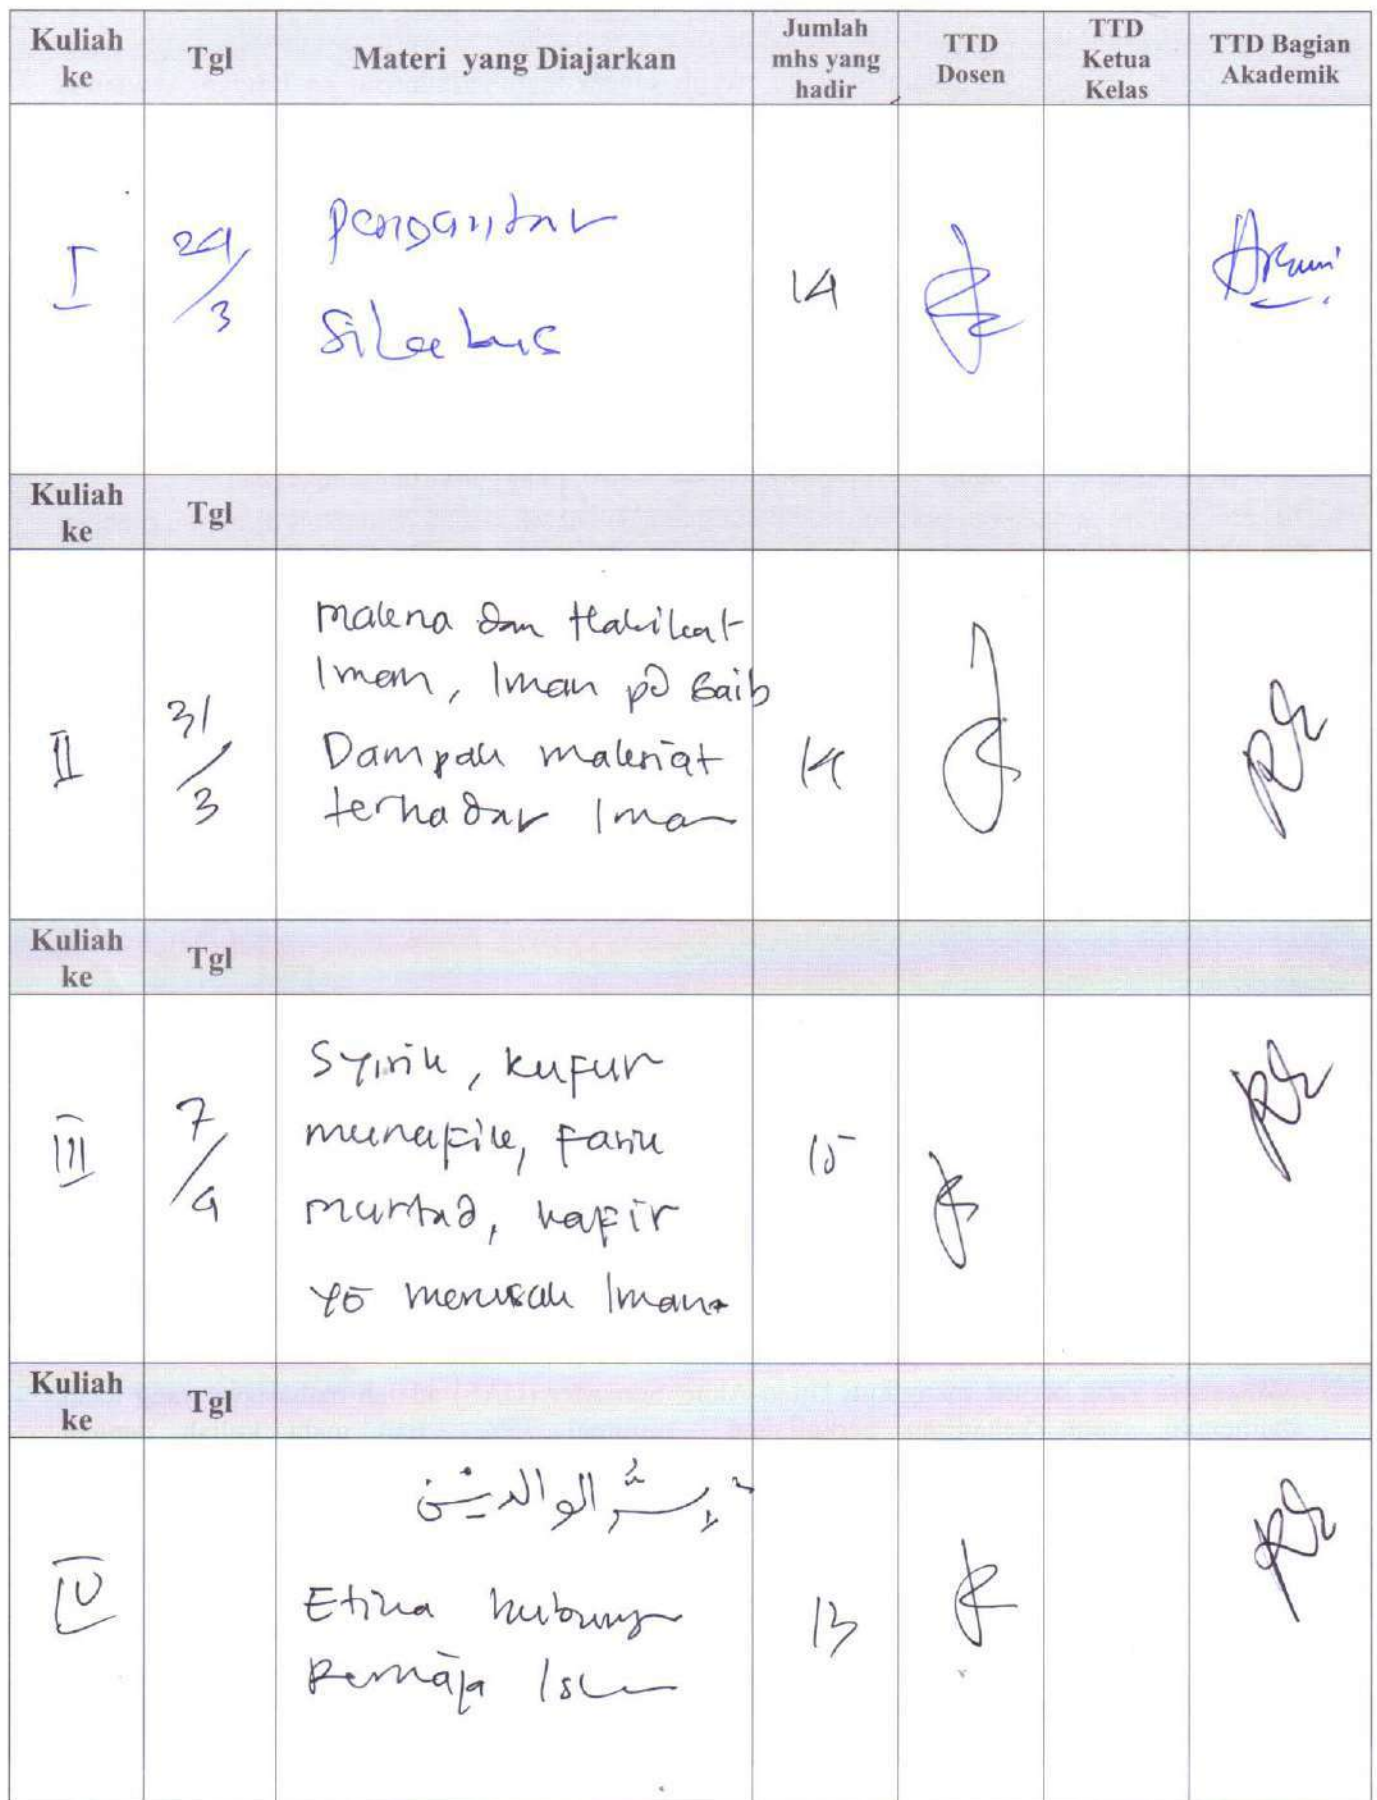 Kuliah ke Tgl Materi yang Diajarkan Jumlah mhs yang hadir TTD Dosen TTD Ketua Kelas TTD Bagian Akademik
I 24/3 Pengantar 14
Silabus
Kuliah ke Tgl
II 31/3 makna dan Hakikat 14
Iman, Iman pd Gaib
Dampak maksiat
terhadap Iman
Kuliah ke Tgl
III 7/4 Syirik, kufur 15
munafik, Fasik
murtad, kafir
yg merusak Iman
Kuliah ke Tgl
IV الوالدين 13
Etika hubungan
Remaja Islam